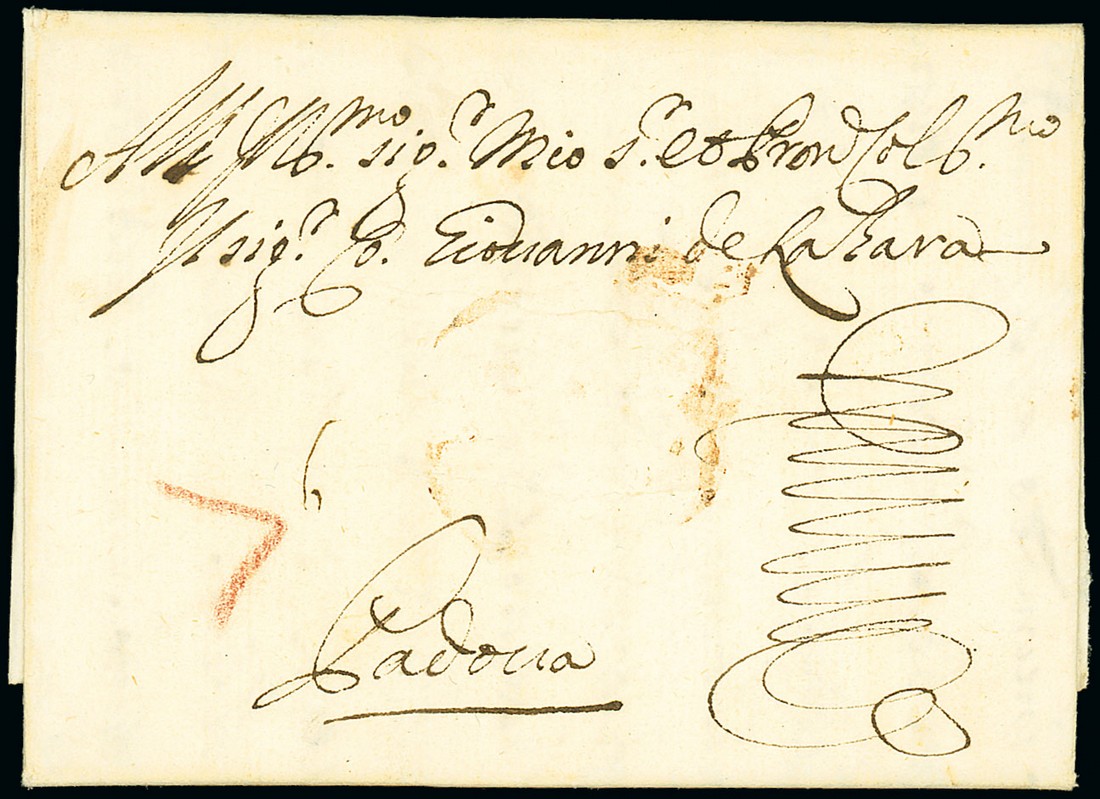 All Ill.mo sig.r Mio S.r et Pron Col.mo
Il sig.r Co. Giouanni de Lazara
6
7
Padoua